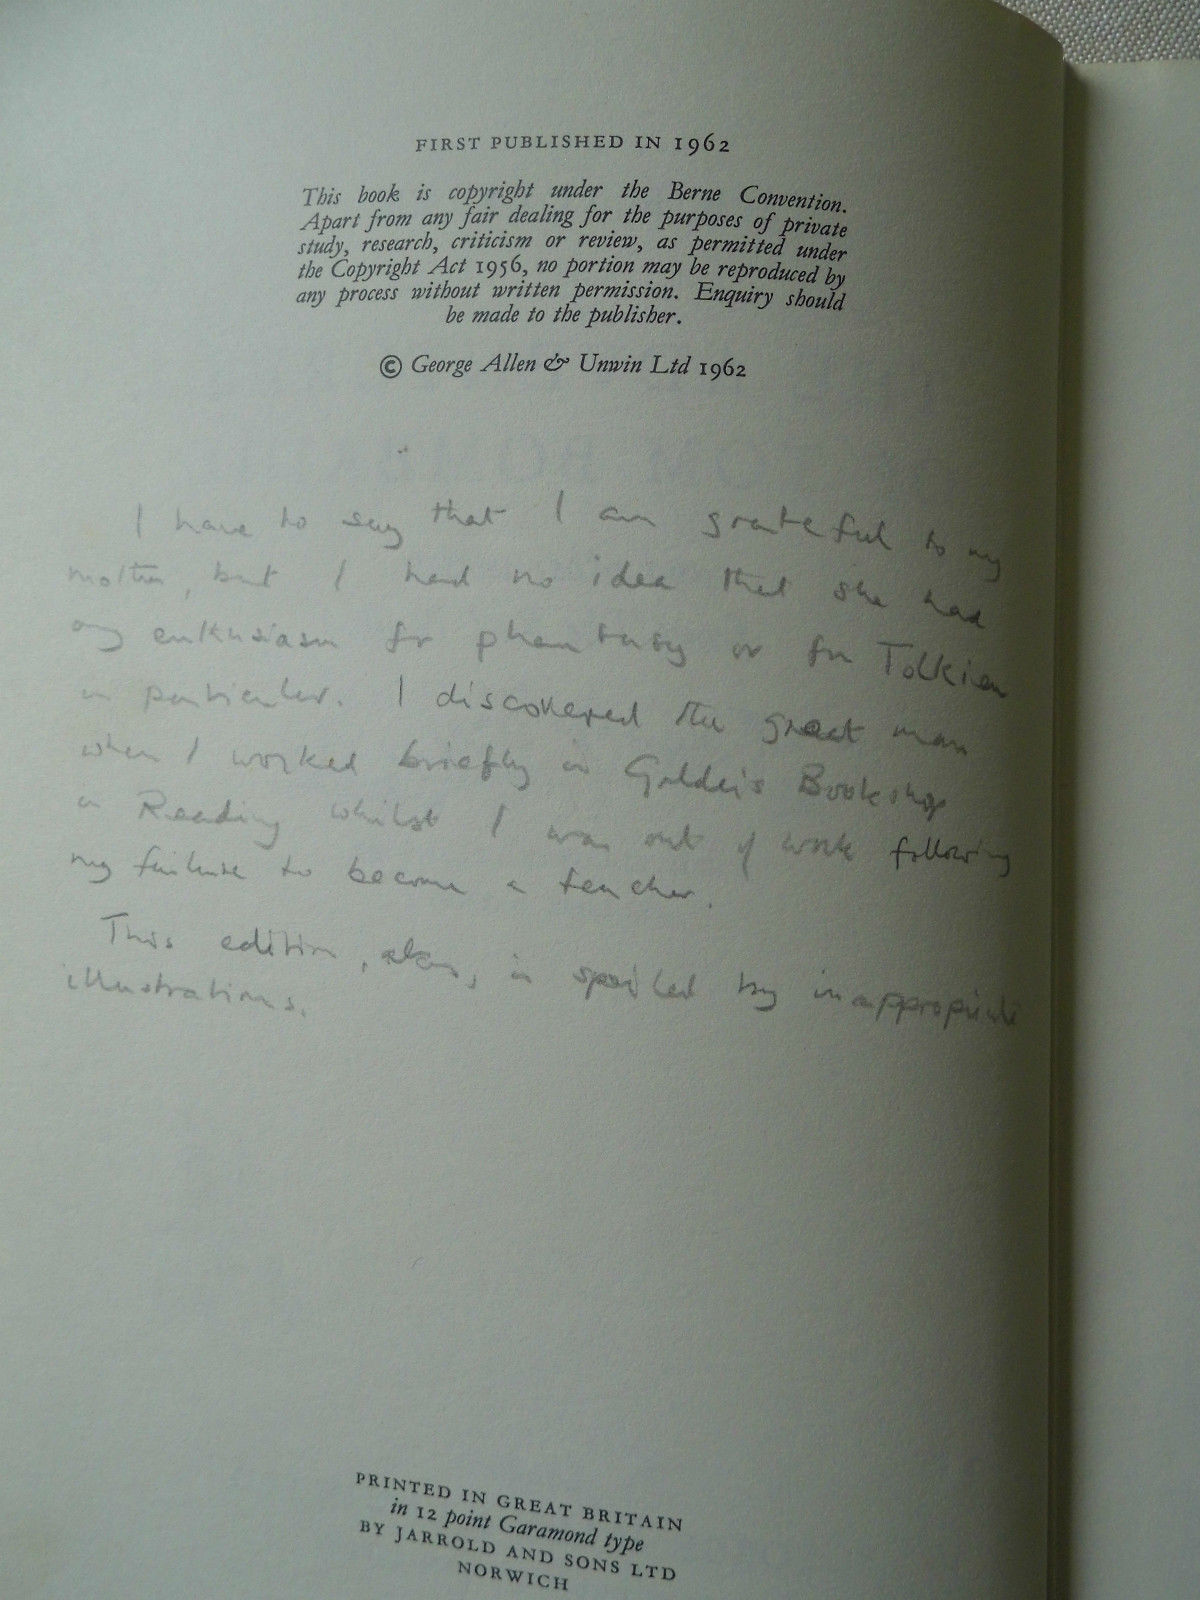 FIRST PUBLISHED IN 1962
This book is copyright under the Berne Convention.
Apart from any fair dealing for the purposes of private
study, research, criticism or review, as permitted under
the Copyright Act 1956, no portion may be reproduced by
any process without written permission. Enquiry should
be made to the publisher.
© George Allen & Unwin Ltd 1962
I have to say that I am grateful to my
mother, but I had no idea that she had
any enthusiasm for phantasy or for Tolkien
in particular. I discovered the great man
when I worked briefly in Bookshop
in Reading whilst I was out of work following
my failure to become a teacher.
This edition, alas, is spoiled by inappropriate
illustrations.
PRINTED IN GREAT BRITAIN
in 12 point Garamond type
BY JARROLD AND SONS LTD
NORWICH